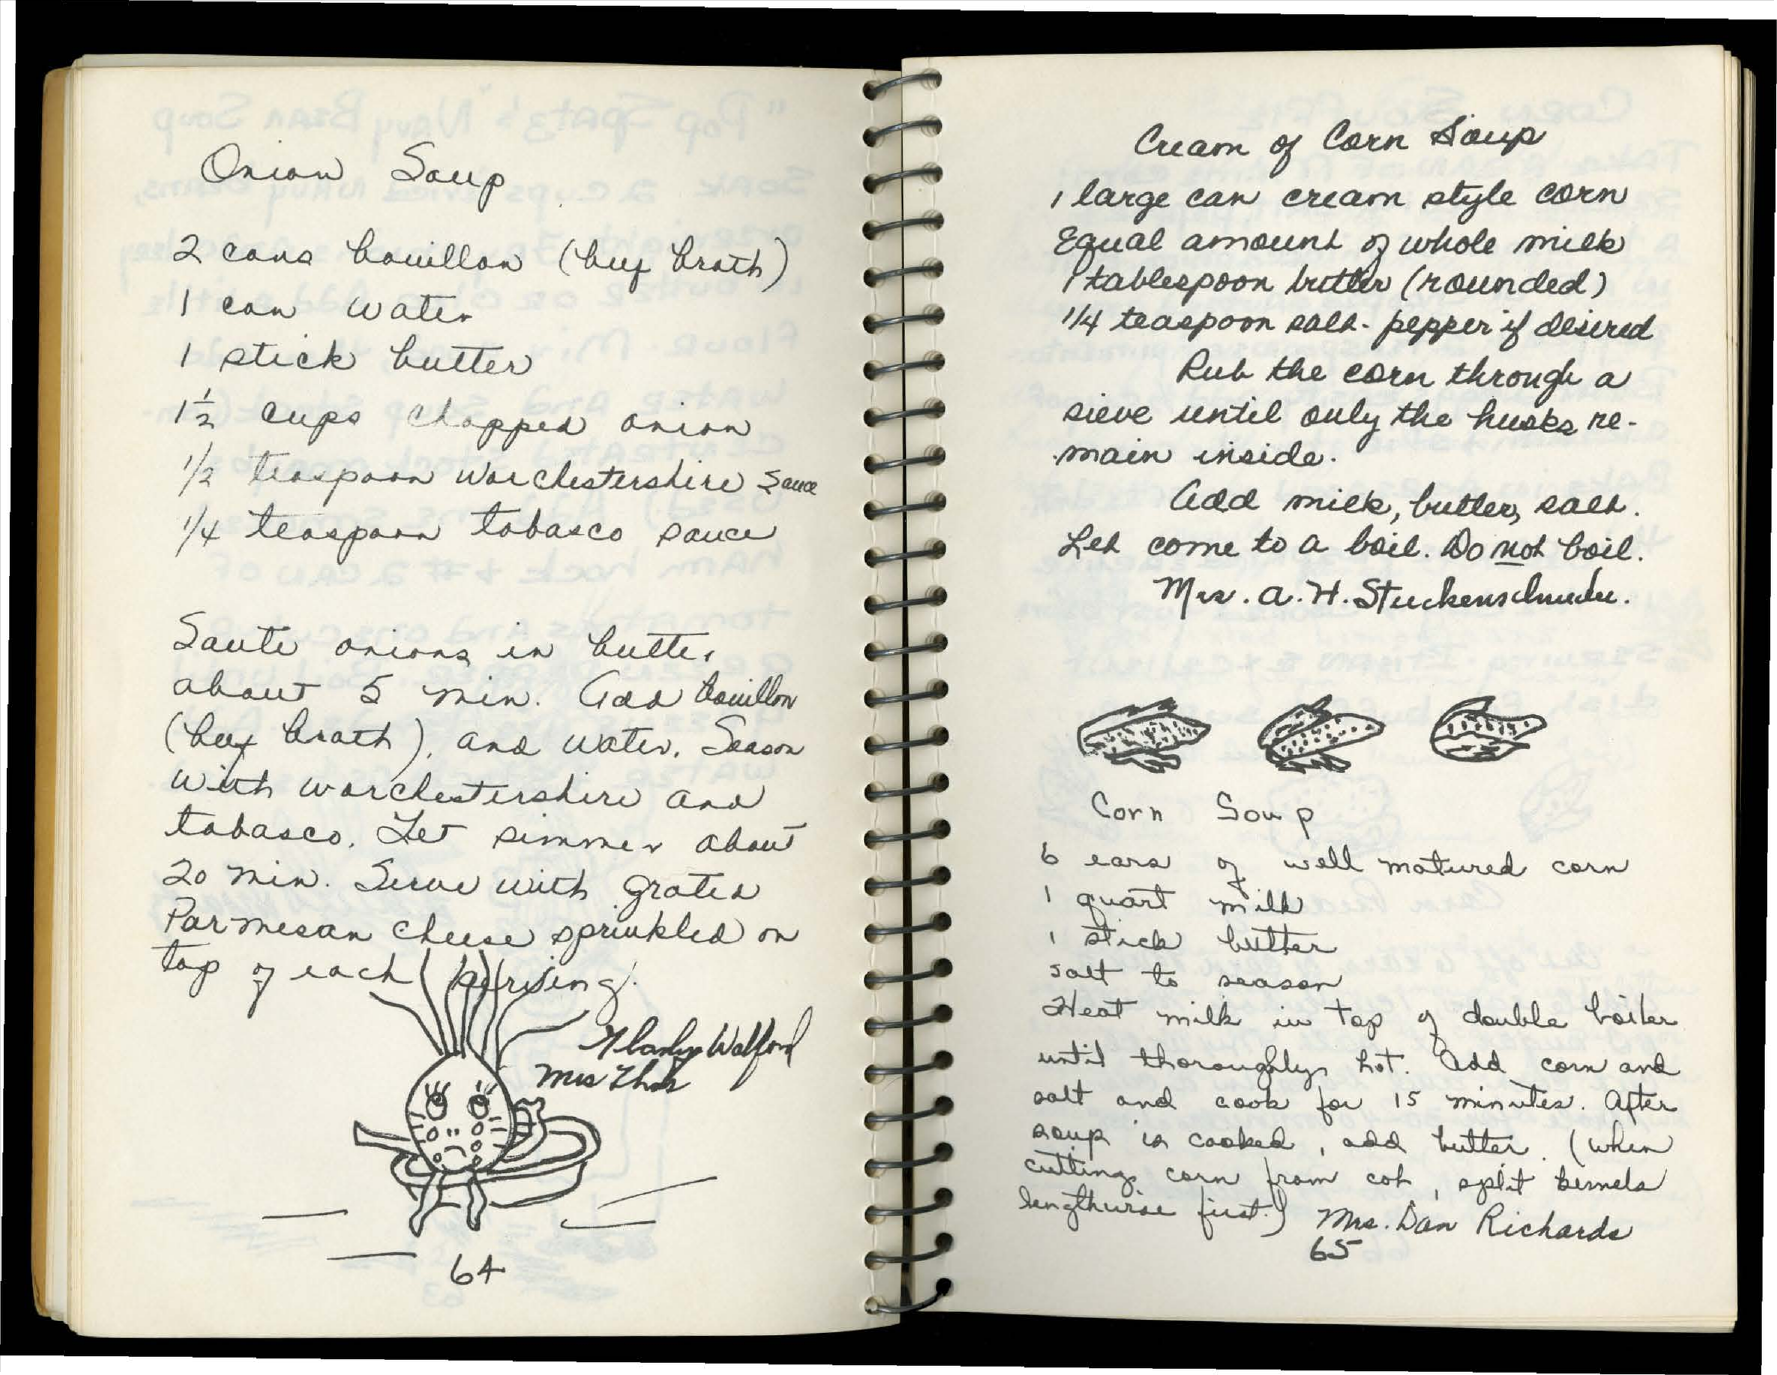 Onion Soup
2 cans bouillon (beef broth)
1 can water
1 stick butter
1 1/2 cups chopped onion
1/2 teaspoon worchestershire sauce
1/4 teaspoon tobasco sauce
Saute onions in butter
about 5 min. Add bouillon
(beef broth), and water. Season
with worchestershire and
tobasco. Let simmer about
20 min. Serve with grated
Parmesan cheese sprinkled on
top of each
Walford
Mrs
64
Cream of Corn Soup
1 large can cream style corn
Equal amount of whole milk
1 tablespoon butter (rounded)
1/4 teaspoon salt - pepper if desired
Rub the corn through a
sieve until only the husks re-
main inside.
Add milk, butter, salt.
Let come to a boil. Do not boil.
Mrs. A. H. Stuckenschneider.
Corn Soup
6 ears of well matured corn
1 quart milk
1 stick butter
salt to season
Heat milk in top of double boiler
until thoroughly hot. Add corn and
salt and cook for 15 minutes. After
soup is cooked, add butter. (When
cutting corn from cob, split kernels
lengthwise first.) Mrs. Dan Richards
65